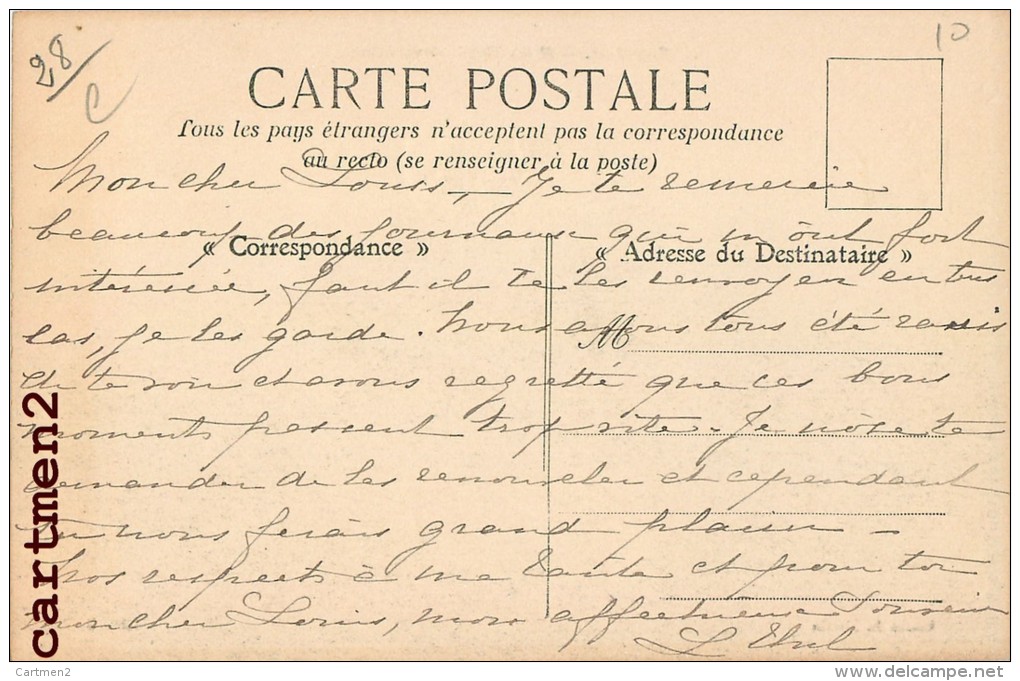 28/
C
10
CARTE POSTALE
Tous les pays étrangers n'acceptent pas la correspondance
au recto (se renseigner à la poste)
Mon cher Louis, – Je te remercie
beaucoup des journaux qui m'ont fort
« Correspondance »
« Adresse du Destinataire »
intéressée, faut il te les renvoyer en tus
cas, je les garde. Nous avons tous été ravis
M
de te voir et avons regretté que ces bons
moments passent trop vite. Je n'ose te
demander de les renouveler et cependant
tu nous ferais grand plaisir –
Nos respects à ma tante et pour toi
mon cher Louis, mon affectueux Souvenir
cartmen2
Cartmen2
www.delcampe.net